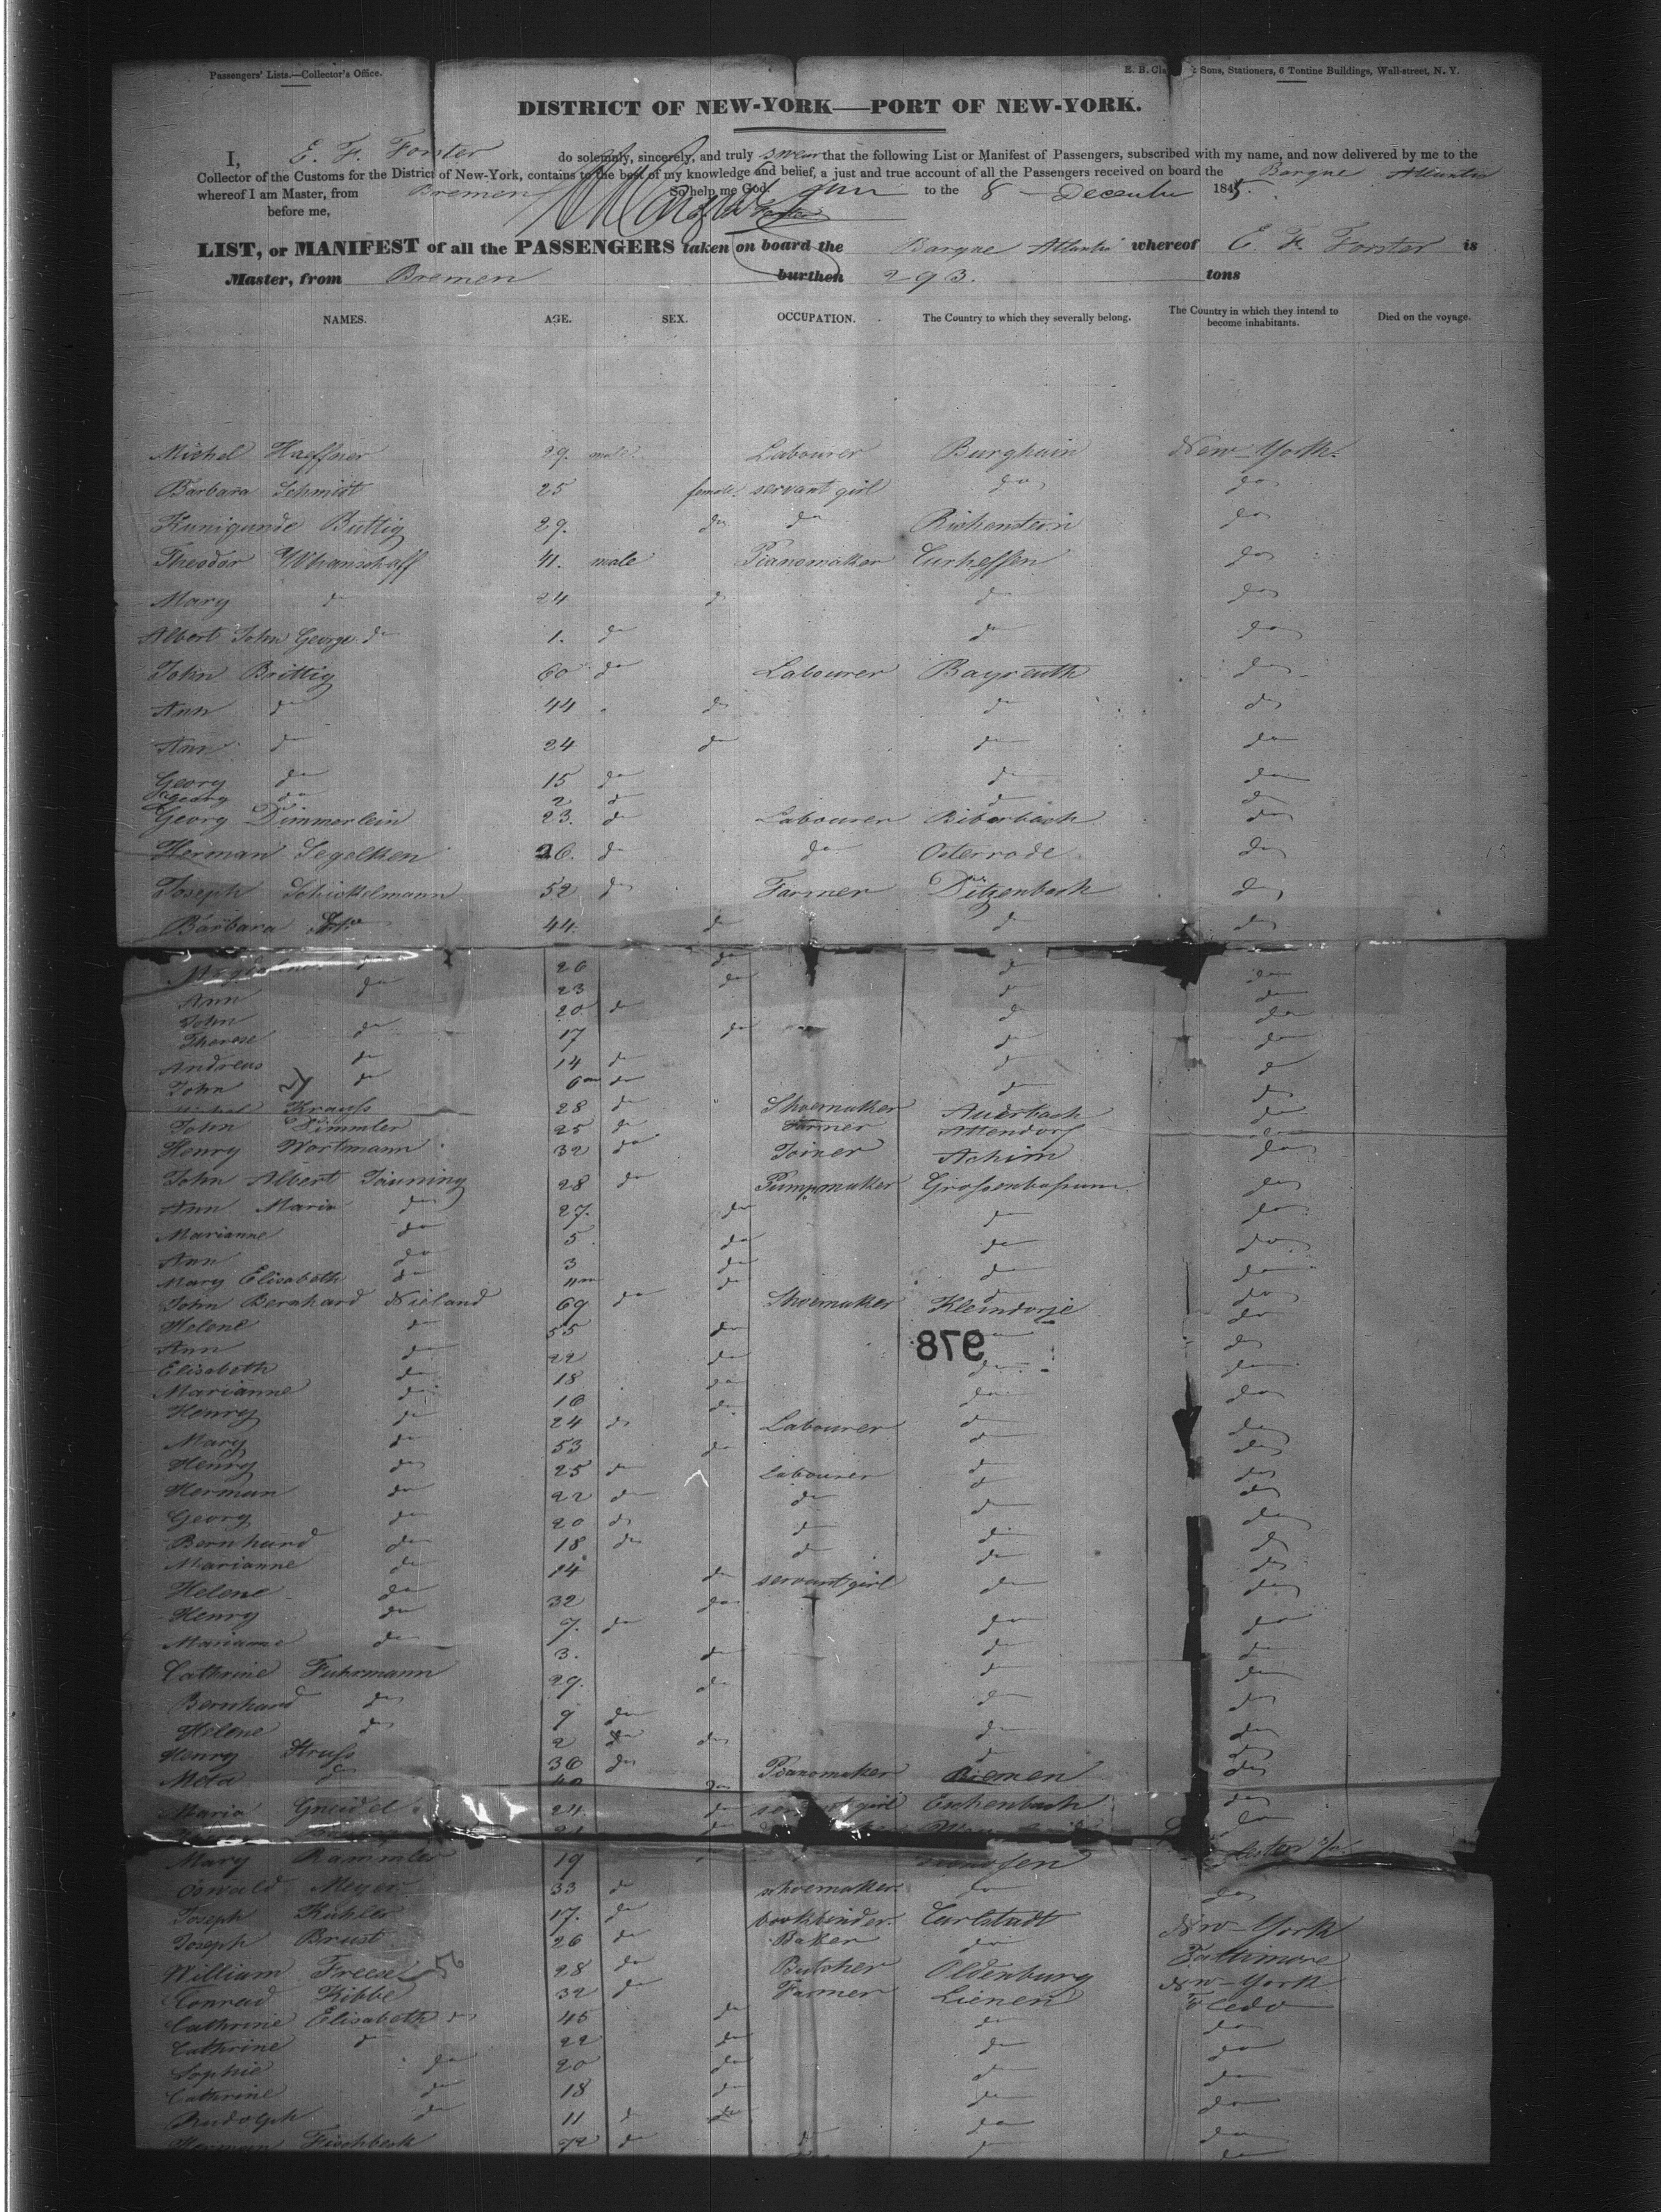 Passengers' Lists.—Collector's Office.
E. B. Sons, Stationers, 6 Tontine Buildings, Wall-street, N. Y.
DISTRICT OF NEW-YORK—PORT OF NEW-YORK.
I, E. F. Forster do solemnly, sincerely, and truly swear that the following List or Manifest of Passengers, subscribed with my name, and now delivered by me to the
Collector of the Customs for the District of New-York, contains to the best of my knowledge and belief, a just and true account of all the Passengers received on board the Barque Atlantic
whereof I am Master, from Bremen So help me God. to the 8 December 1845.
before me,
LIST, or MANIFEST of all the PASSENGERS taken on board the Barque Atlantic whereof E. F. Forster is
Master, from Bremen burthen 293. tons
NAMES. AGE. SEX. OCCUPATION. The Country to which they severally belong. The Country in which they intend to become inhabitants. Died on the voyage.
Michel Haeffner 29. male. Labourer Burghain New-York.
Barbara Schmidt 25 female. servant girl do do
Kunigunde Buttig 29. do do do
Theodor 41. male Pianomaker Curhessen do
Mary d 24 d do do
Albert John George do 1. do do do
John Brittig 60 do Labourer Bayreuth do
Ann do 44 do do do
Ann do 24 do do do
Georg do 15 do do do
do 2 do do do
Georg Dimmerlein 23. do Labourer Biberbach do
Herman Segelken 26. do do Osterrode do
Joseph Schickelmann 52 do Farmer Ditzenbach do
Barbara 44. do do do
do 26 do do do
Ann do 23 do do do
John 20 do do do
Therese do 17 do do do
Andreas do 14 do do do
John do 6m do do do
Krauss 28 do Shoemaker Auerbach do
John 25 do Farmer Attendorf do
Henry Wortmann 32 do Joiner Achim do
John Albert Jauning 28 do Pumpmaker Grossenbassum do
Ann Maria do 27. do do do
Marianne do 5 do do do
Ann do 3 do do do
Mary Elisabeth do 11m do do do
John Bernhard Nieland 69 do Shoemaker Kleindorje do
Helene do 55 do do
978
Ann do 22 do do do
Elisabeth do 18 do do do
Marianne do 16 do do do
Henry do 24 do Labourer do do
Mary do 53 do do do
Henry do 25 do Labourer do do
Herman do 22 do do do do
Georg do 20 do do do do
Bernhard do 18 do do do do
Marianne do 14 do servant girl do do
Helene do 32 do do do
Henry do 7. do do do
Marianne do 3. do do do
Cathrine Fuhrmann 29. do do do
Bernhard do 9 do do do
Helene do 2 do do do
Henry Struss 36 do Pianomaker Bremen do
Meta do 40 do do
Maria Gneidel 24. do servant girl Eschenbach do
Mary Rammler 19
Oswald Meyer 33 do shoemaker. do do
Joseph Kuhler 17. do bookbinder. Carlstadt New-York
Joseph Brust 26 do Baker do Baltimore
William Freese 28 do Butcher Oldenburg New-York
Conrad Kibbe 32 do Farmer Lienen Toledo
Cathrine Elisabeth do 45 do do do
Cathrine d 22 do do do
Sophie do 20 do do do
Cathrine do 18 do do do
Rudolph do 11 d do do
Fischbeck 72 do do do do